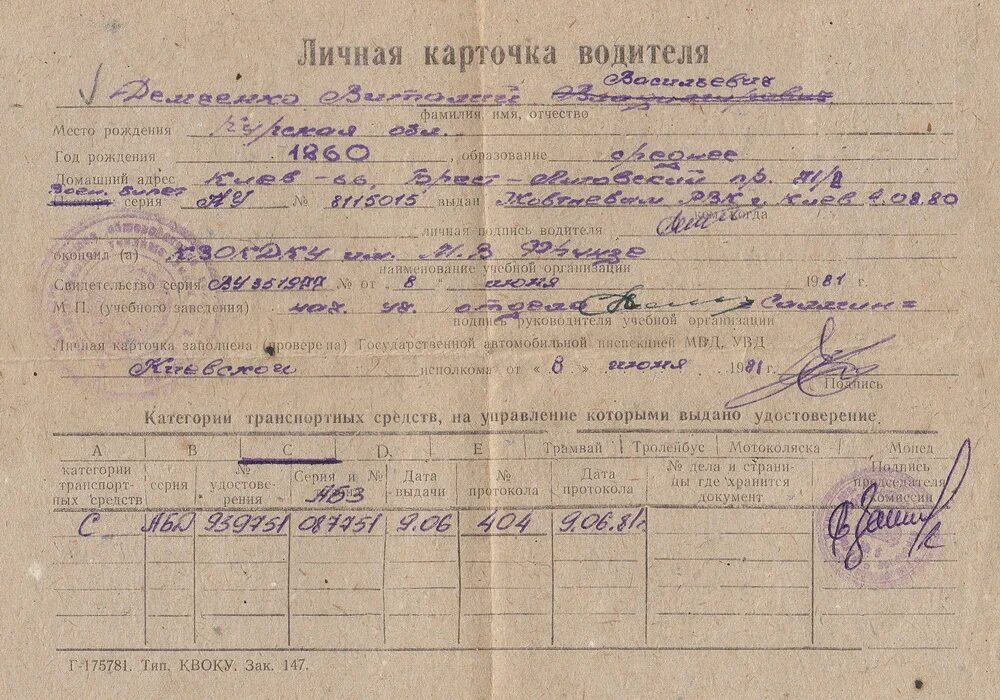 Личная карточка водителя
Васильевич
Демченко Виталий Владимирович
фамилия, имя, отчество
Место рождения Курская обл.
Год рождения 1960, образование среднее
Домашний адрес Киев-66, Брест-Литовский пр.
Воен. билет
серия АУ № 8115015 выдан Жовтневым РВК г. Киев 9.08.80
кем, когда
личная подпись водителя
окончил (а) КВОКДКУ им. М. В Фрунзе
наименование учебной организации
Свидетельство серия ВУ 351977 № от „ 8 " июня 1981 г.
М П. (учебного заведения) нач. уч. отдела
подпись руководителя учебной организации
Личная карточка заполнена (проверена) Государственной автомобильной инспекцией МВД, УВД
Киевской исполкома от « 8 » июня 1981 г.
Подпись
Категории транспортных средств, на управление которыми выдано удостоверение.
А В С D Е Трамвай Тролейбус Мотоколяска Мопед
категории транспортных средств серия № удостоверения Серия и № АБЗ Дата выдачи № протокола Дата протокола № дела и страницы где хранится документ Подпись председателя комиссии
С АБД 939751 087751 9.06 404 9.06.81г
Г-175781. Тип. КВОКУ. Зак. 147.